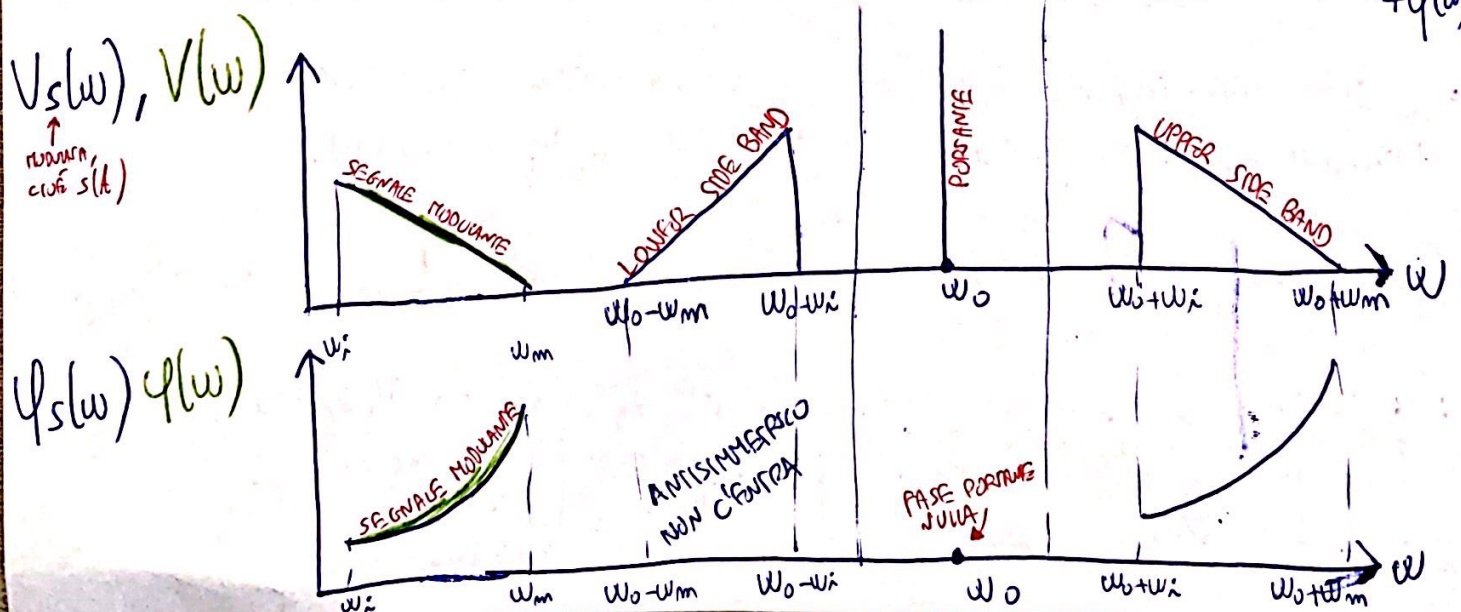 +φ(ω)
Vs(ω), V(ω)
↑
CIOÈ S(t)
SEGNALE MODULANTE
LOWER SIDE BAND
PORTANTE
UPPER SIDE BAND
ωi
ωm
ω0-ωm
ω0-ωi
ω0
ω0+ωi
ω0+ωm
ω
φs(ω) φ(ω)
SEGNALE MODULANTE
ANTISIMMETRICO
NON C'ENTRA
FASE PORTANTE
NULLA
ωi
ωm
ω0-ωm
ω0-ωi
ω0
ω0+ωi
ω0+ωm
ω